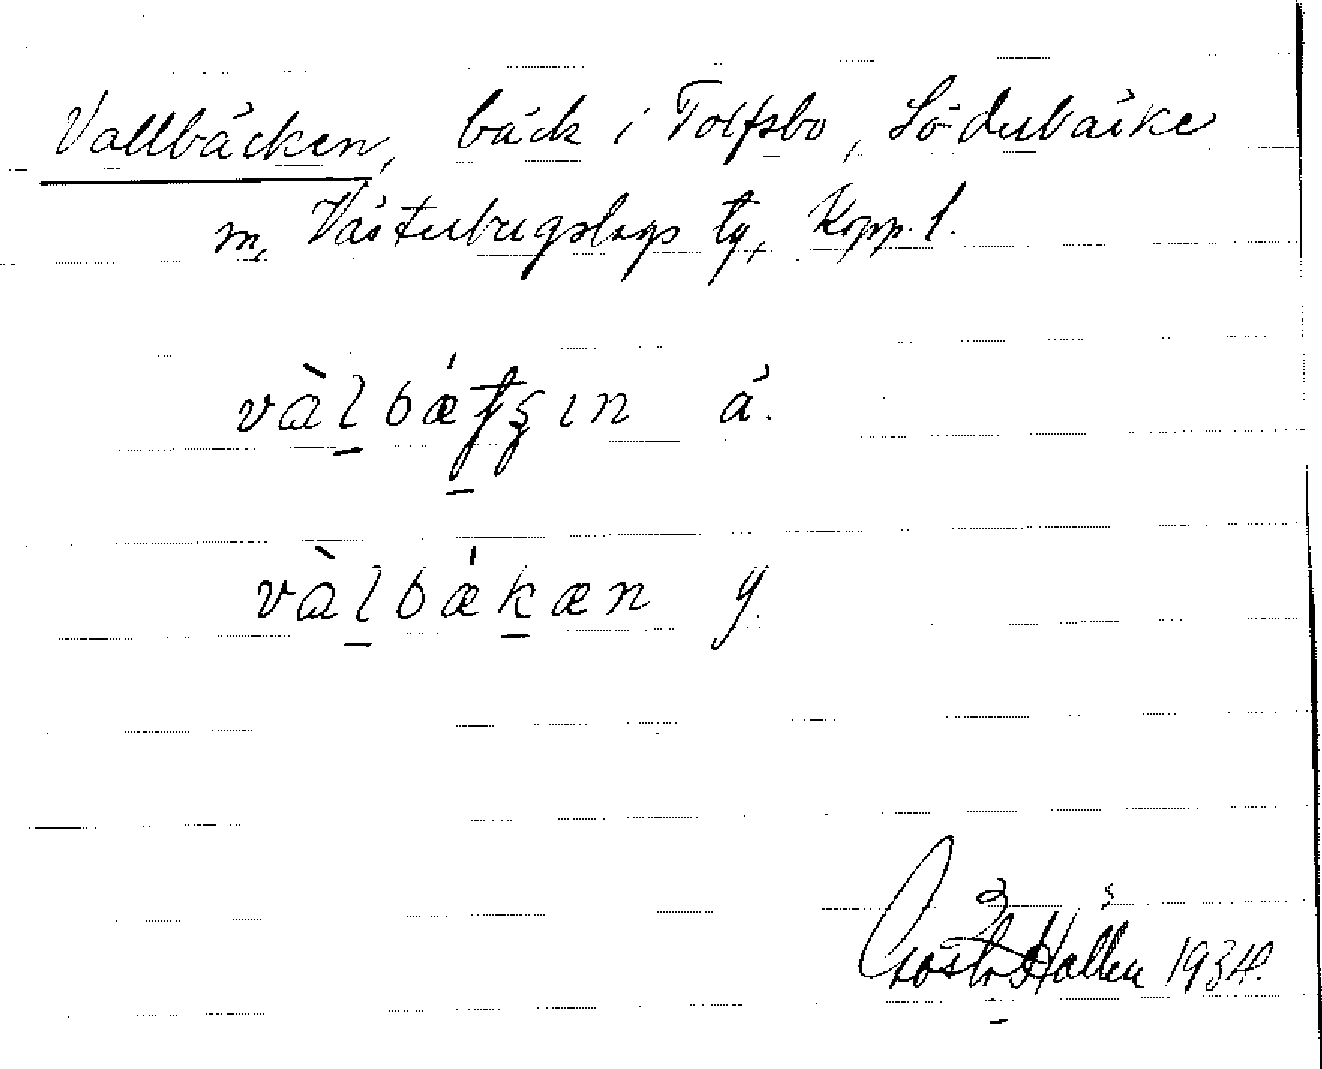 Vallbäcken, bäck i Tolfsbo, Söderbärke
m, Västerbergslags tg, Kopp. l.
và̀lbǽtʂın ä.
và̀lbǽkæn y.
Gösta Hallén 1934.